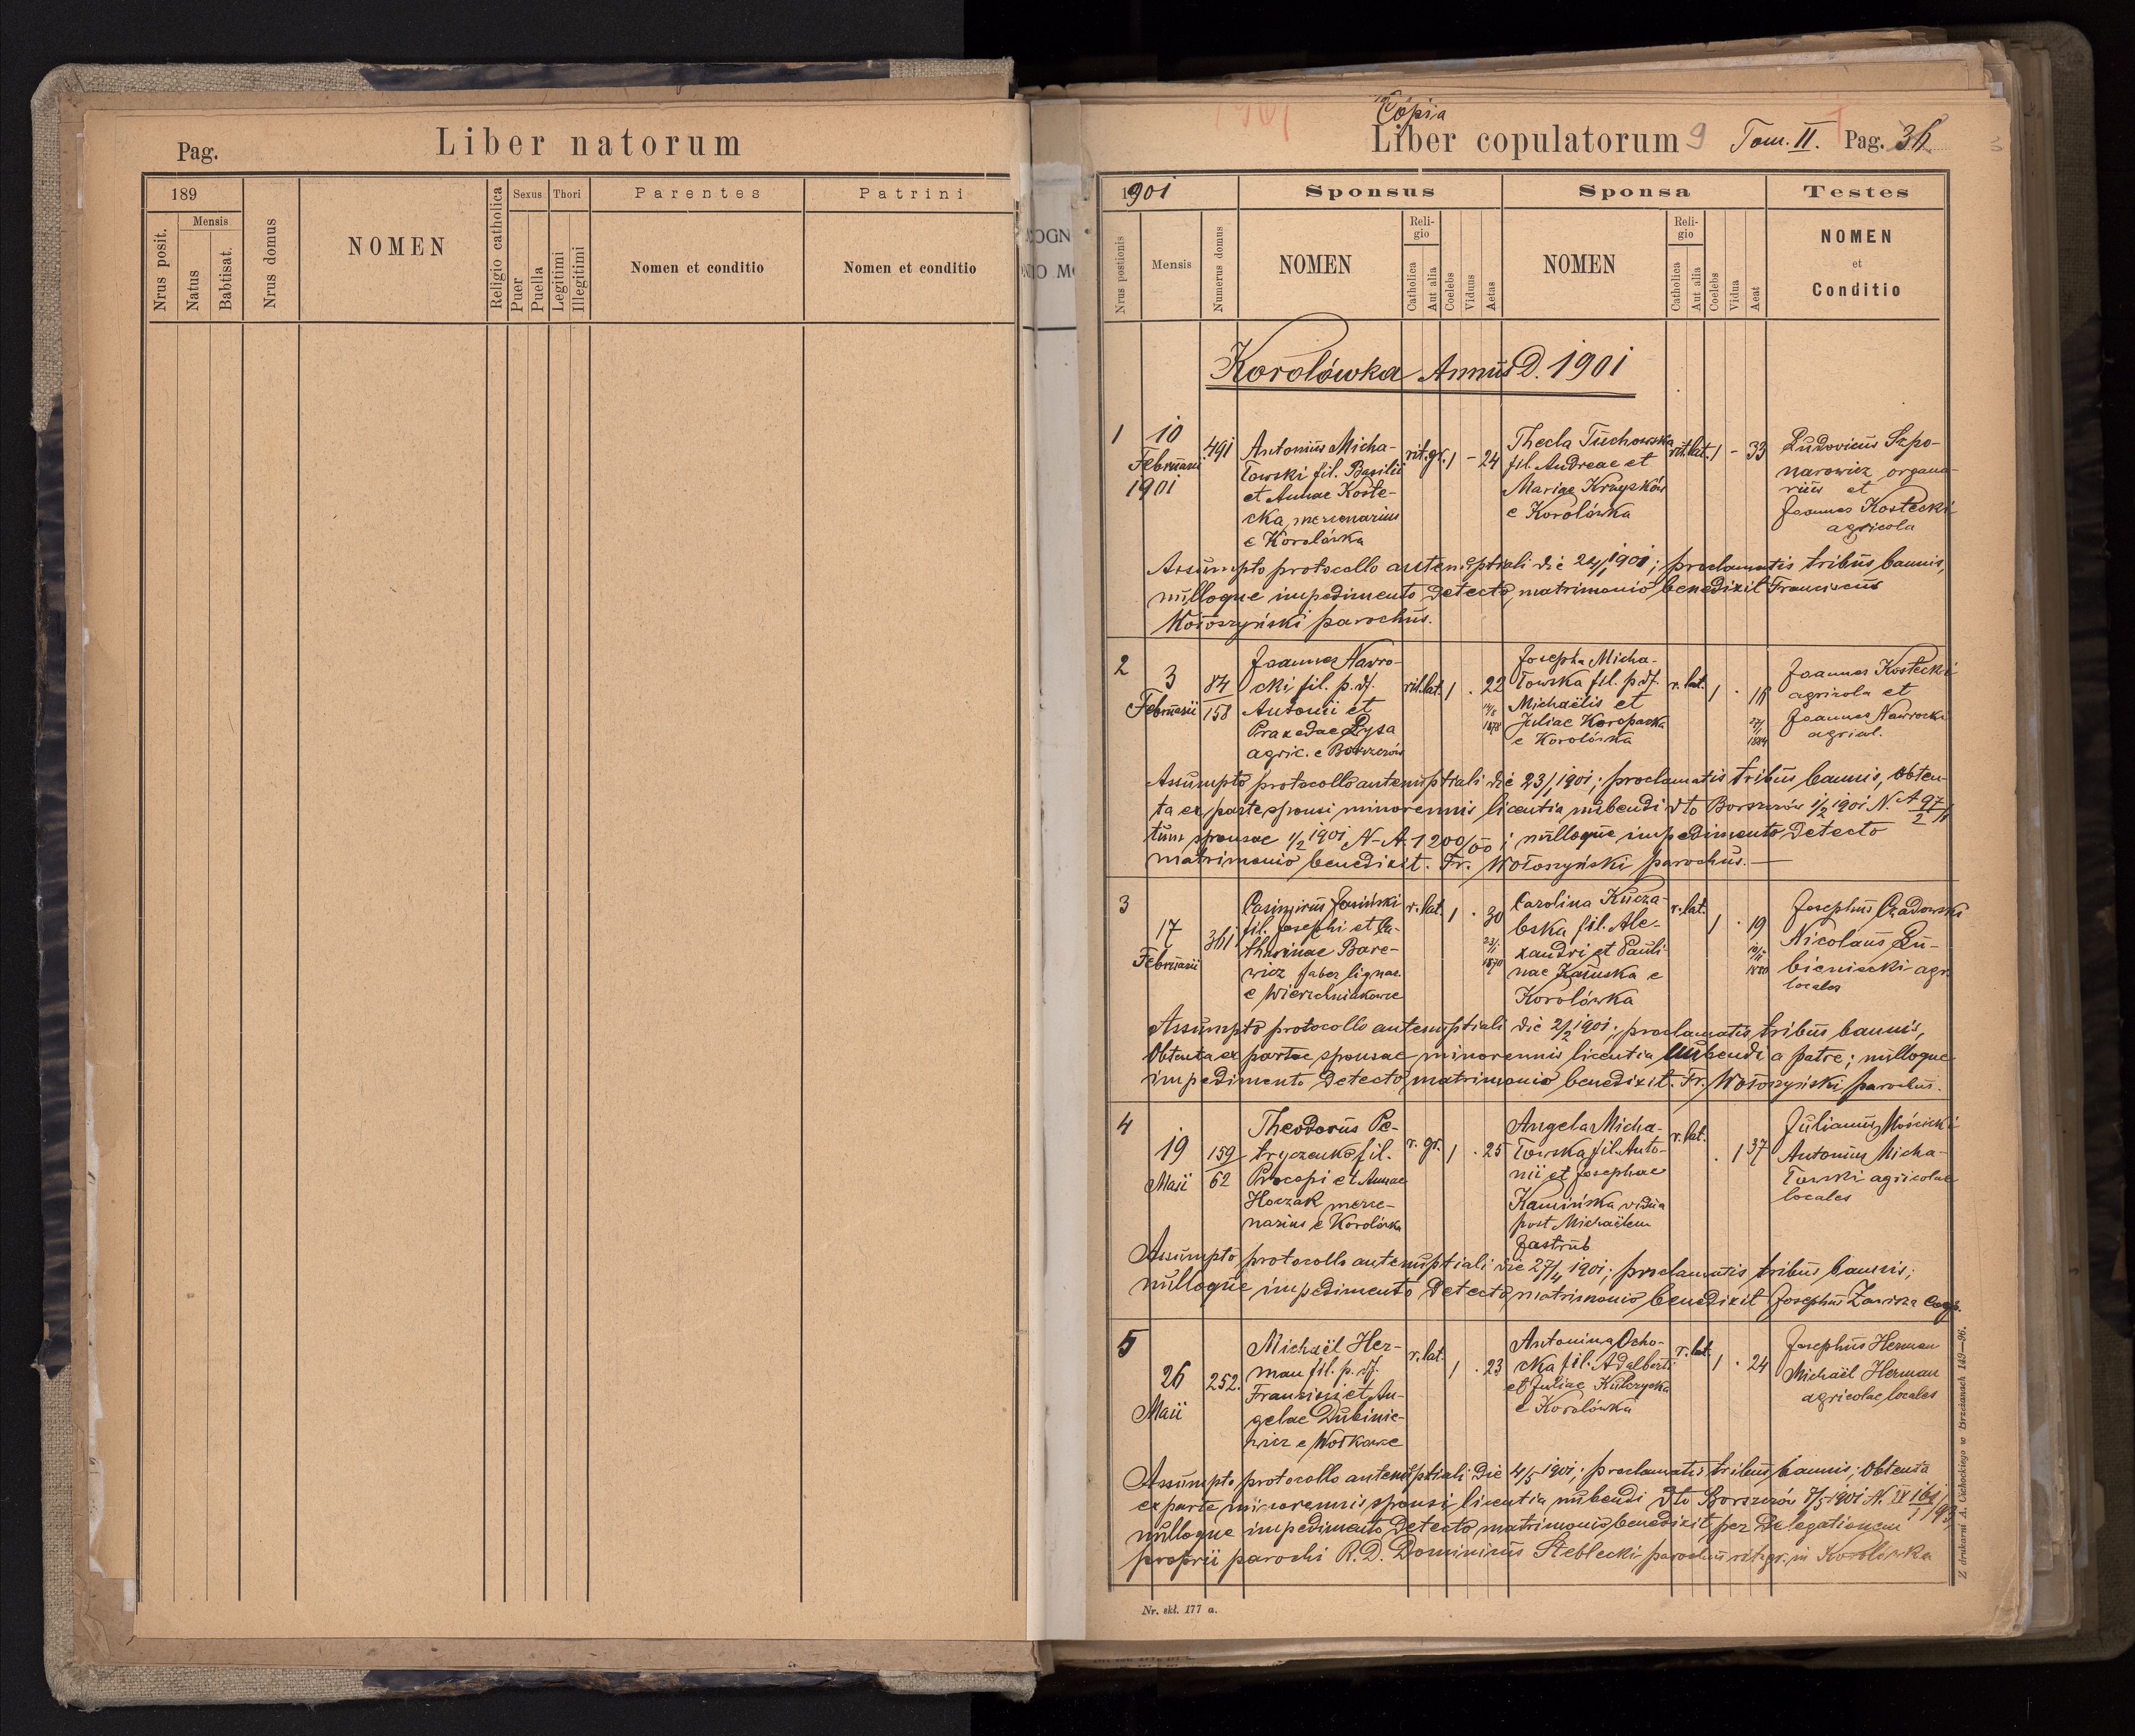 Pag.
Liber natorum
189
Nrus posit.
Mensis
Natus
Babtisat.
Nrus domus
NOMEN
Religio catholica
Sexus
Puer
Puella
Thori
Legitimi
Illegitimi
Parentes
Nomen et conditio
Patrini
Nomen et conditio
Copia
1901
Liber copulatorum 9 Tom. II. Pag. 36
1901
Sponsus
Sponsa
Testes
Nrus postionis
Mensis
Numerus domus
NOMEN
Religio
Catholica
Aut alia
Coelebs
Viduus
Aetas
NOMEN
Religio
Catholica
Aut alia
Coelebs
Vidua
Aeat
NOMEN
et
Conditio
Korolówka Annus D. 1901
1
10
Februarii
1901
491
Antonius Micha-
łowski fil. Basilii
et Annae Koste-
cka, mercenarius
e Korolówka
rit. gr. 1 - 24
Thecla Tuchowska
fil. Andreae et
Mariae Krzysków
e Korolówka
rit. lat. 1 - 33
Ludovicus Szpo-
narowicz organa-
rius et
Joannes Kostecki
agricola
Assumpto protocollo antenuptiali die 24/1 1901; proclamatis tribus bannis,
nulloque impedimento detecto, matrimonio benedixit Franciscus
Wołoszyński parochus.
2
3
Februarii
84
158
Joannes Nawro-
cki fil. p. df.
Antonii et
Praxedae Lysa
agric. e Borszczów
rit. lat. 1 . 22
14/8
1878
Josepha Micha-
łowska fil. p. df.
Michaëlis et
Juliae Koropacka
e Korolówka
r. lat. 1 . 16
27/1
1884
Joannes Kostecki
agricola et
Joannes Nawrocki
agricol.
Assumpto protocollo antenuptiali die 23/1 1901; proclamatis tribus bannis, obten-
ta ex parte sponsi minorennis licentia nubendi dto Borszczów 1/2 1901 N. A 97/2/1
tum sponsae 1/2 1901 N-A. 1 200/00; nulloque impedimento detecto
matrimonio benedixit. Fr. Wołoszyński parochus.
3
17
Februarii
361
Casimirus Jasiński
fil. Josephi et Ca-
tharinae Bare-
wicz faber lignar.
e Wierzchniakowce
r. lat. 1 . 30
1870
Carolina Kucza-
bska fil. Ale-
xandri et Pauli-
nae Kałuska e
Korolówka
r. lat. 1 . 19
Josephus Czadowski
Nicolaus Lu-
bieniecki agr.
locales
Assumpto protocollo antenuptiali die 2/2 1901; proclamatis tribus bannis,
Obtenta ex parte sponsae minorennis licentia nubendi a patre; nulloque
impedimento detecto matrimonio benedixit. Fr. Wołoszyński parochus.
4
19
Maii
159
62
Theodorus Pe-
tryczenko fil.
Procopi et Annae
Hoczak merce-
narius e Korolówka
r. gr. 1 . 25
Angela Micha-
łowska fil. Anto-
nii et Josephae
Kamińska vidua
post Michaëlem
Jastrub
r. lat. . 1 37
Julianus Mościcki
Antonius Micha-
łowski agricolae
locales
Assumpto protocollo antenuptiali die 27/4 1901; proclamatis tribus bannis;
nulloque impedimento detecto matrimonio benedixit Josephus Zawisza coop.
5
26
Maii
252.
Michaël Her-
man fil. p. df.
Francisci et An-
gelae Dubinie-
wicz e Wołkowce
r. lat. 1 . 23
Antonina Ocho-
cka fil. Adalberti
et Juliae Kulczycka
e Korolówka
r. lat. 1 . 24
Josephus Herman
Michaël Herman
agricolae locales
Assumpto protocollo antenuptiali die 4/5 1901; proclamatis tribus bannis; Obtenta
ex parte minorennis sponsi licentia nubendi dto Borszczów 7/5 1901 N. IV
nulloque impedimento detecto matrimonio benedixit per delegationem
proprii parochi R. D. Dominicus Steblecki parochus rit. gr. in Korolówka
Nr. skł. 177 a.
Z drukarni A. Cichockiego w Brzeżanach 149—96.